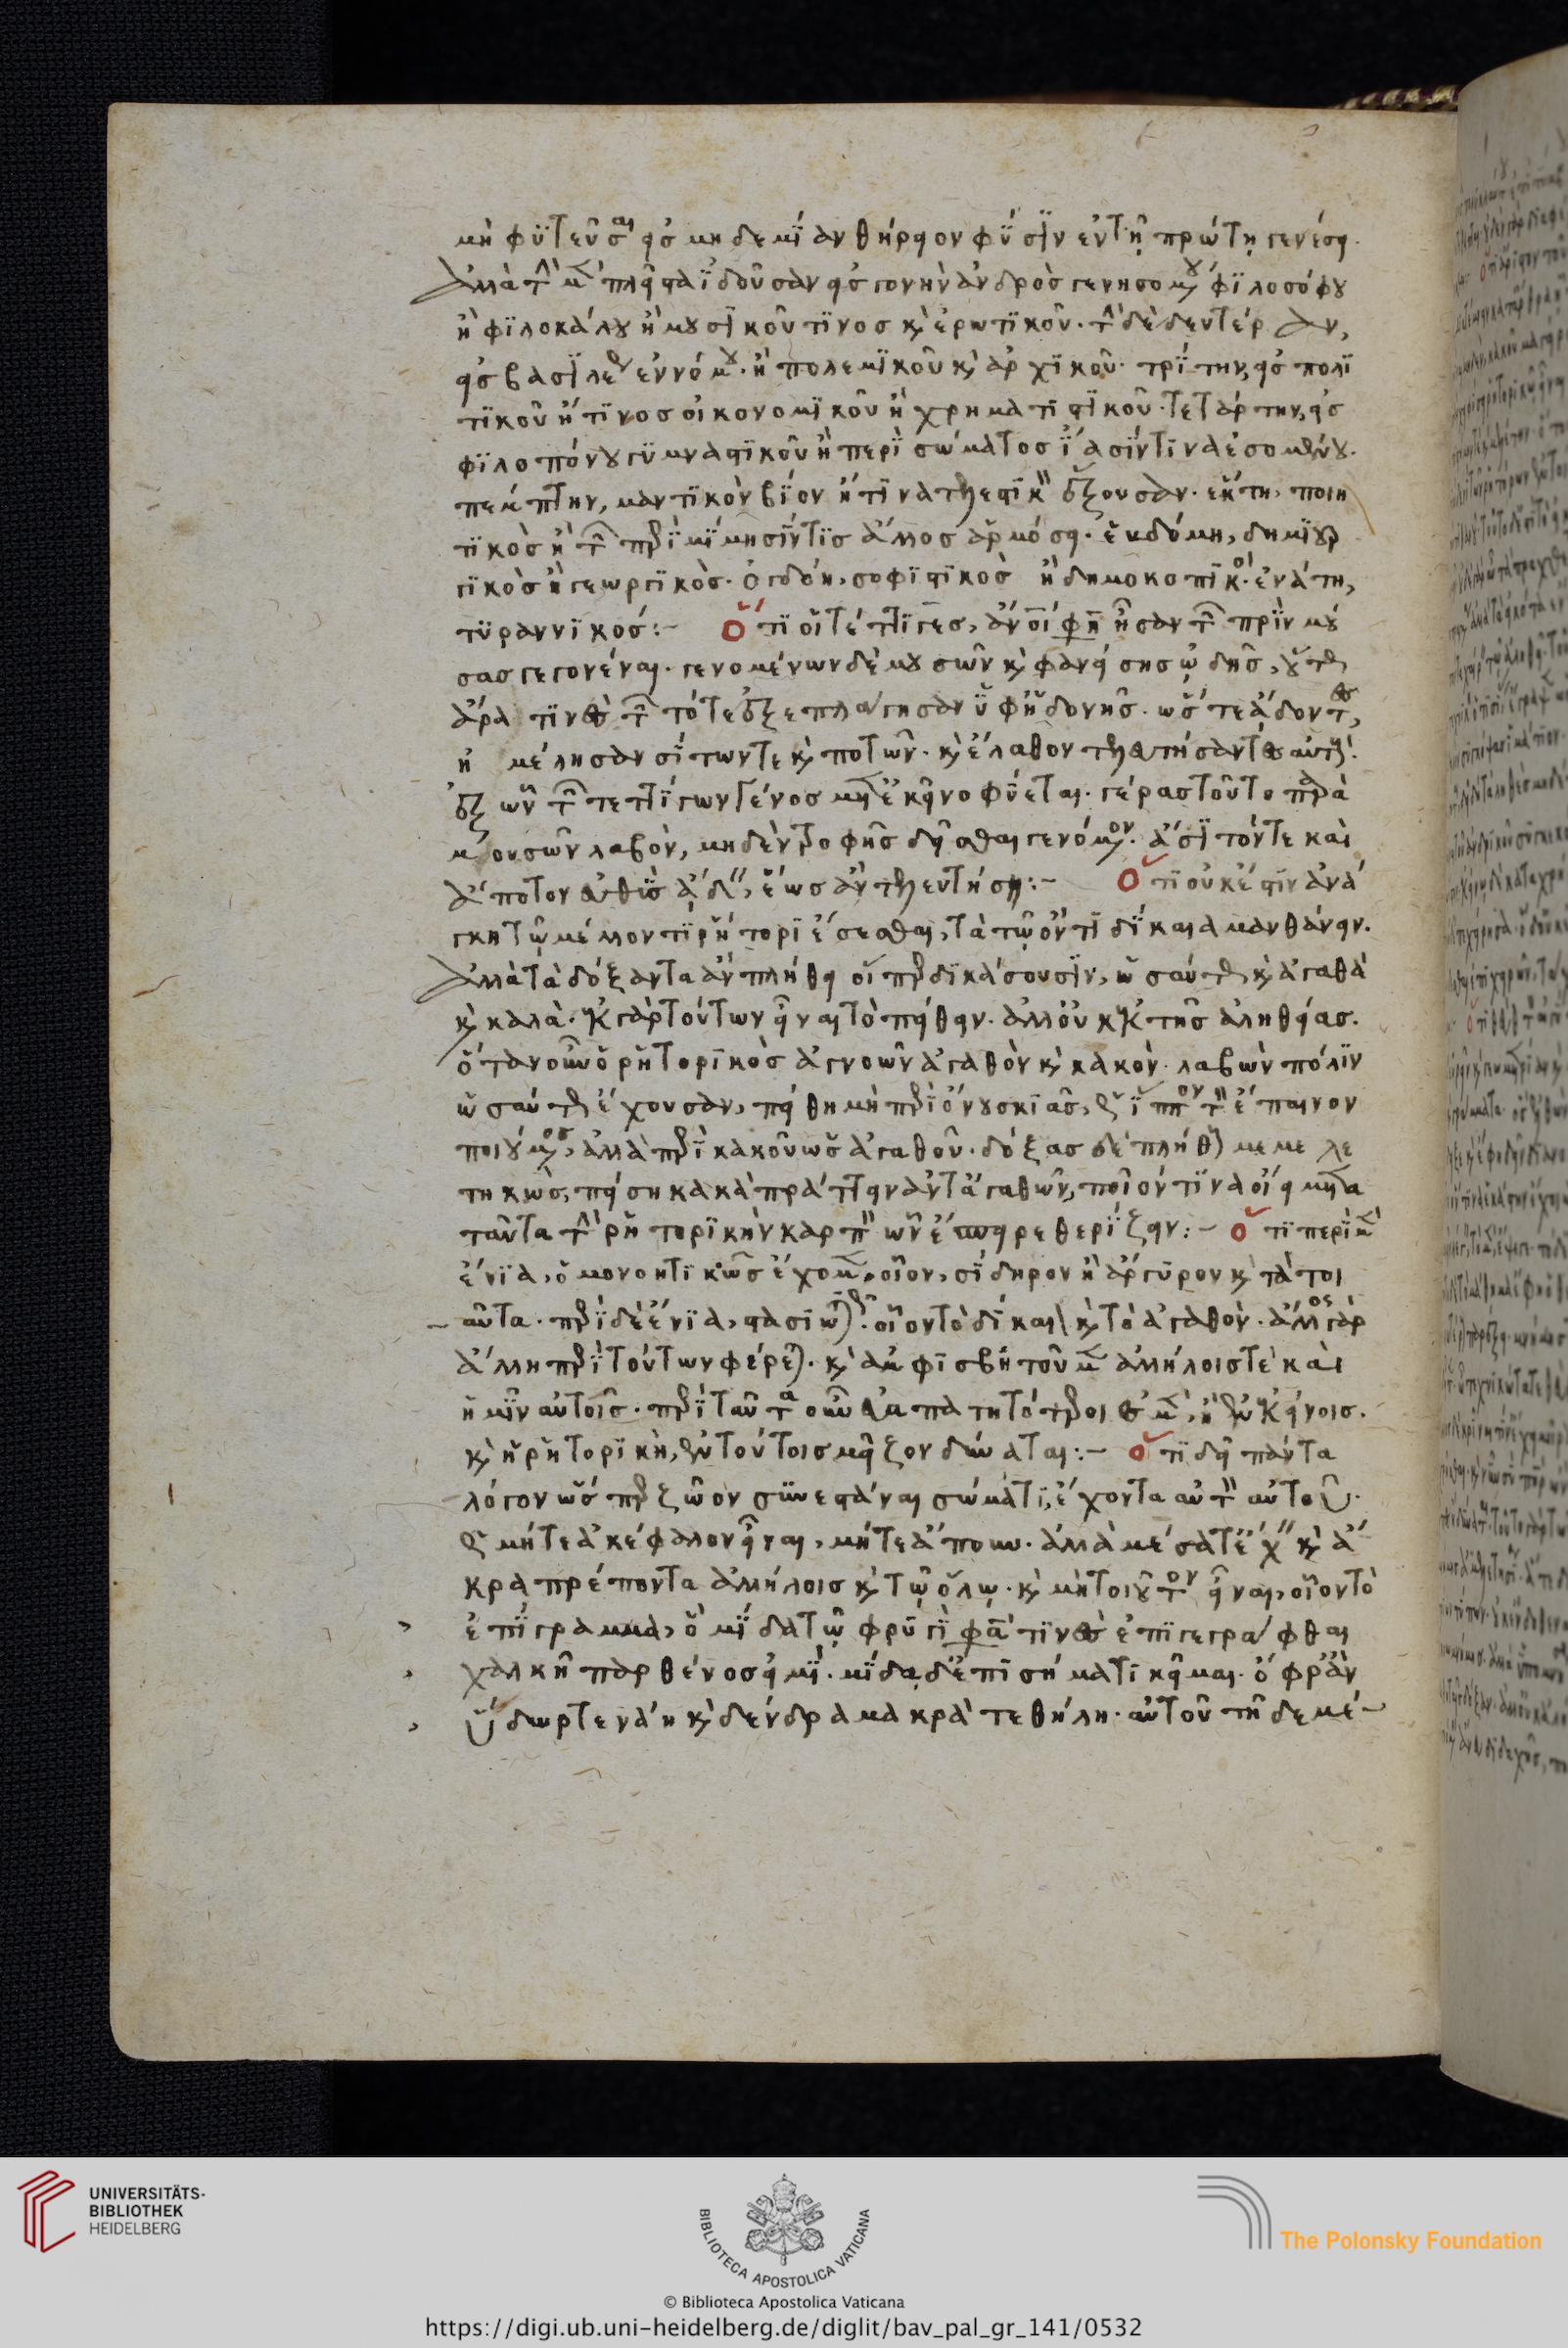 μὴ φυτεῦσαι εἰς μηδεμίαν θήρειον φύσιν ἐν τῇ πρώτῃ γενέσει.
ἀλλὰ τὴν μὲν πλεῖστα ἰδοῦσαν εἰς γονὴν ἀνδρὸς γενησομένου φιλοσόφου
ἢ φιλοκάλου ἢ μουσικοῦ τινος καὶ ἐρωτικοῦ. τὴν δὲ δευτέραν,
εἰς βασιλέως ἐννόμου. ἢ πολεμικοῦ καὶ ἀρχικοῦ. τρίτην, εἰς πολι
τικοῦ ἤ τινος οἰκονομικοῦ ἢ χρηματιστικοῦ. τετάρτην, εἰς
φιλοπόνου γυμναστικοῦ ἢ περὶ σώματος ἴασίν τινα ἐσομένου.
πέμπτην, μαντικὸν βίον ἤ τινα τελεστικὸν ἕξουσαν. ἕκτη, ποιη
τικὸς ἢ τῶν περὶ μίμησίν τις ἄλλος ἁρμόσει. ἑβδόμη, δημιουρ
γικὸς ἢ γεωργικὸς. ὀγδόη, σοφιστικὸς ἢ δημοκοπικός. ἐνάτη,
τυραννικός:- Ὅτι οἱ τέττιγες, ἀνοί φησιν ἦσαν τῶν πρὶν μού
σας γεγονέναι. γενομένων δὲ μουσῶν καὶ φανείσης ᾠδῆς, οὕτως
ἄρα τινὲς τῶν τότε ἐξεπλάγησαν ὑφ' ἡδονῆς. ὥστε ᾄδοντες,
ἠμέλησαν σίτων τε καὶ ποτῶν. καὶ ἔλαθον τελευτήσαντες αὑτούς.
ἐξ ὧν τῶν τεττίγων γένος μετ' ἐκεῖνο φύεται. γέρας τοῦτο παρὰ
μουσῶν λαβὸν, μηδὲν τροφῆς δεῖσθαι γενόμενον. ἄσιτόν τε καὶ
ἄποτον εὐθὺς ᾄδειν, ἕως ἂν τελευτήσῃ:- Ὅτι οὐκ ἔστιν ἀνά
γκη τῷ μέλλοντι ῥήτορι ἔσεσθαι, τὰ τῷ ὄντι δίκαια μανθάνειν.
ἀλλὰ τὰ δόξαντα ἂν πλήθει οἵπερ δικάσουσιν, ὡσαύτως καὶ ἀγαθὰ
καὶ καλὰ. ἐκ γὰρ τούτων εἶναι τὸ πείθειν. ἀλλ' οὐκ ἐκ τῆς ἀληθείας.
ὅταν οὖν ὁ ῥητορικὸς ἀγνοῶν ἀγαθὸν καὶ κακὸν. λαβὼν πόλιν
ὡσαύτως ἔχουσαν, πείθῃ μὴ περὶ ὄνου σκιᾶς, ὡς ἵππον τὸν ἔπαινον
ποιούμενος, ἀλλὰ περὶ κακοῦ ὡς ἀγαθοῦ. δόξας δὲ πλήθους μεμελε
τηκὼς, πείσῃ κακὰ πράττειν ἀντ' ἀγαθῶν, ποῖόν τινα οἴει μετὰ
ταῦτα τὴν ῥητορικὴν καρπὸν ὧν ἔσπειρε θερίζειν:- Ὅτι περὶ μὲν
ἔνια, ὁμονοητικῶς ἔχομεν, οἷον, σίδηρον ἢ ἄργυρον καὶ τὰ τοι
αῦτα. περὶ δὲ ἔνια, στασιωτικῶς. οἷον τὸ δίκαιον καὶ τὸ ἀγαθὸν. ἄλλος γὰρ
ἄλλῃ περὶ τούτων φέρεται. καὶ ἀμφισβητοῦμεν ἀλλήλοις τὲ καὶ
ἡμῖν αὐτοῖς. περὶ ταῦτα οὖν εὐαπατητότεροι ἐσμὲν, ἢ ἐν ἐκείνοις.
καὶ ἡ ῥητορικὴ, ἐν τούτοις μεῖζον δύναται:- Ὅτι δεῖ πάντα
λόγον ὥσπερ ζῷον συνεστάναι σώματι, ἔχοντα αὐτὸν αὑτοῦ.
ὡς μήτε ἀκέφαλον εἶναι, μήτε ἄπουν. ἀλλὰ μέσα τὲ ἔχειν καὶ ἄ
κρα πρέποντα ἀλλήλοις καὶ τῷ ὅλῳ. καὶ μὴ τοιοῦτον εἶναι, οἷον τὸ
ἐπίγραμμα, ὃ μίδα τῷ φρυγὶ φασὶ τινὲς ἐπιγεγράφθαι
χαλκῆ παρθένος εἰμὶ. μίδα δ' ἐπὶ σήματι κεῖμαι. ὄφρ' ἂν
ὕδωρ τε νάῃ καὶ δένδρα μακρὰ τεθήλῃ. αὐτοῦ τῇδε μέ-
UNIVERSITÄTS-
BIBLIOTHEK
HEIDELBERG
BIBLIOTECA APOSTOLICA VATICANA
The Polonsky Foundation
© Biblioteca Apostolica Vaticana
https://digi.ub.uni-heidelberg.de/diglit/bav_pal_gr_141/0532